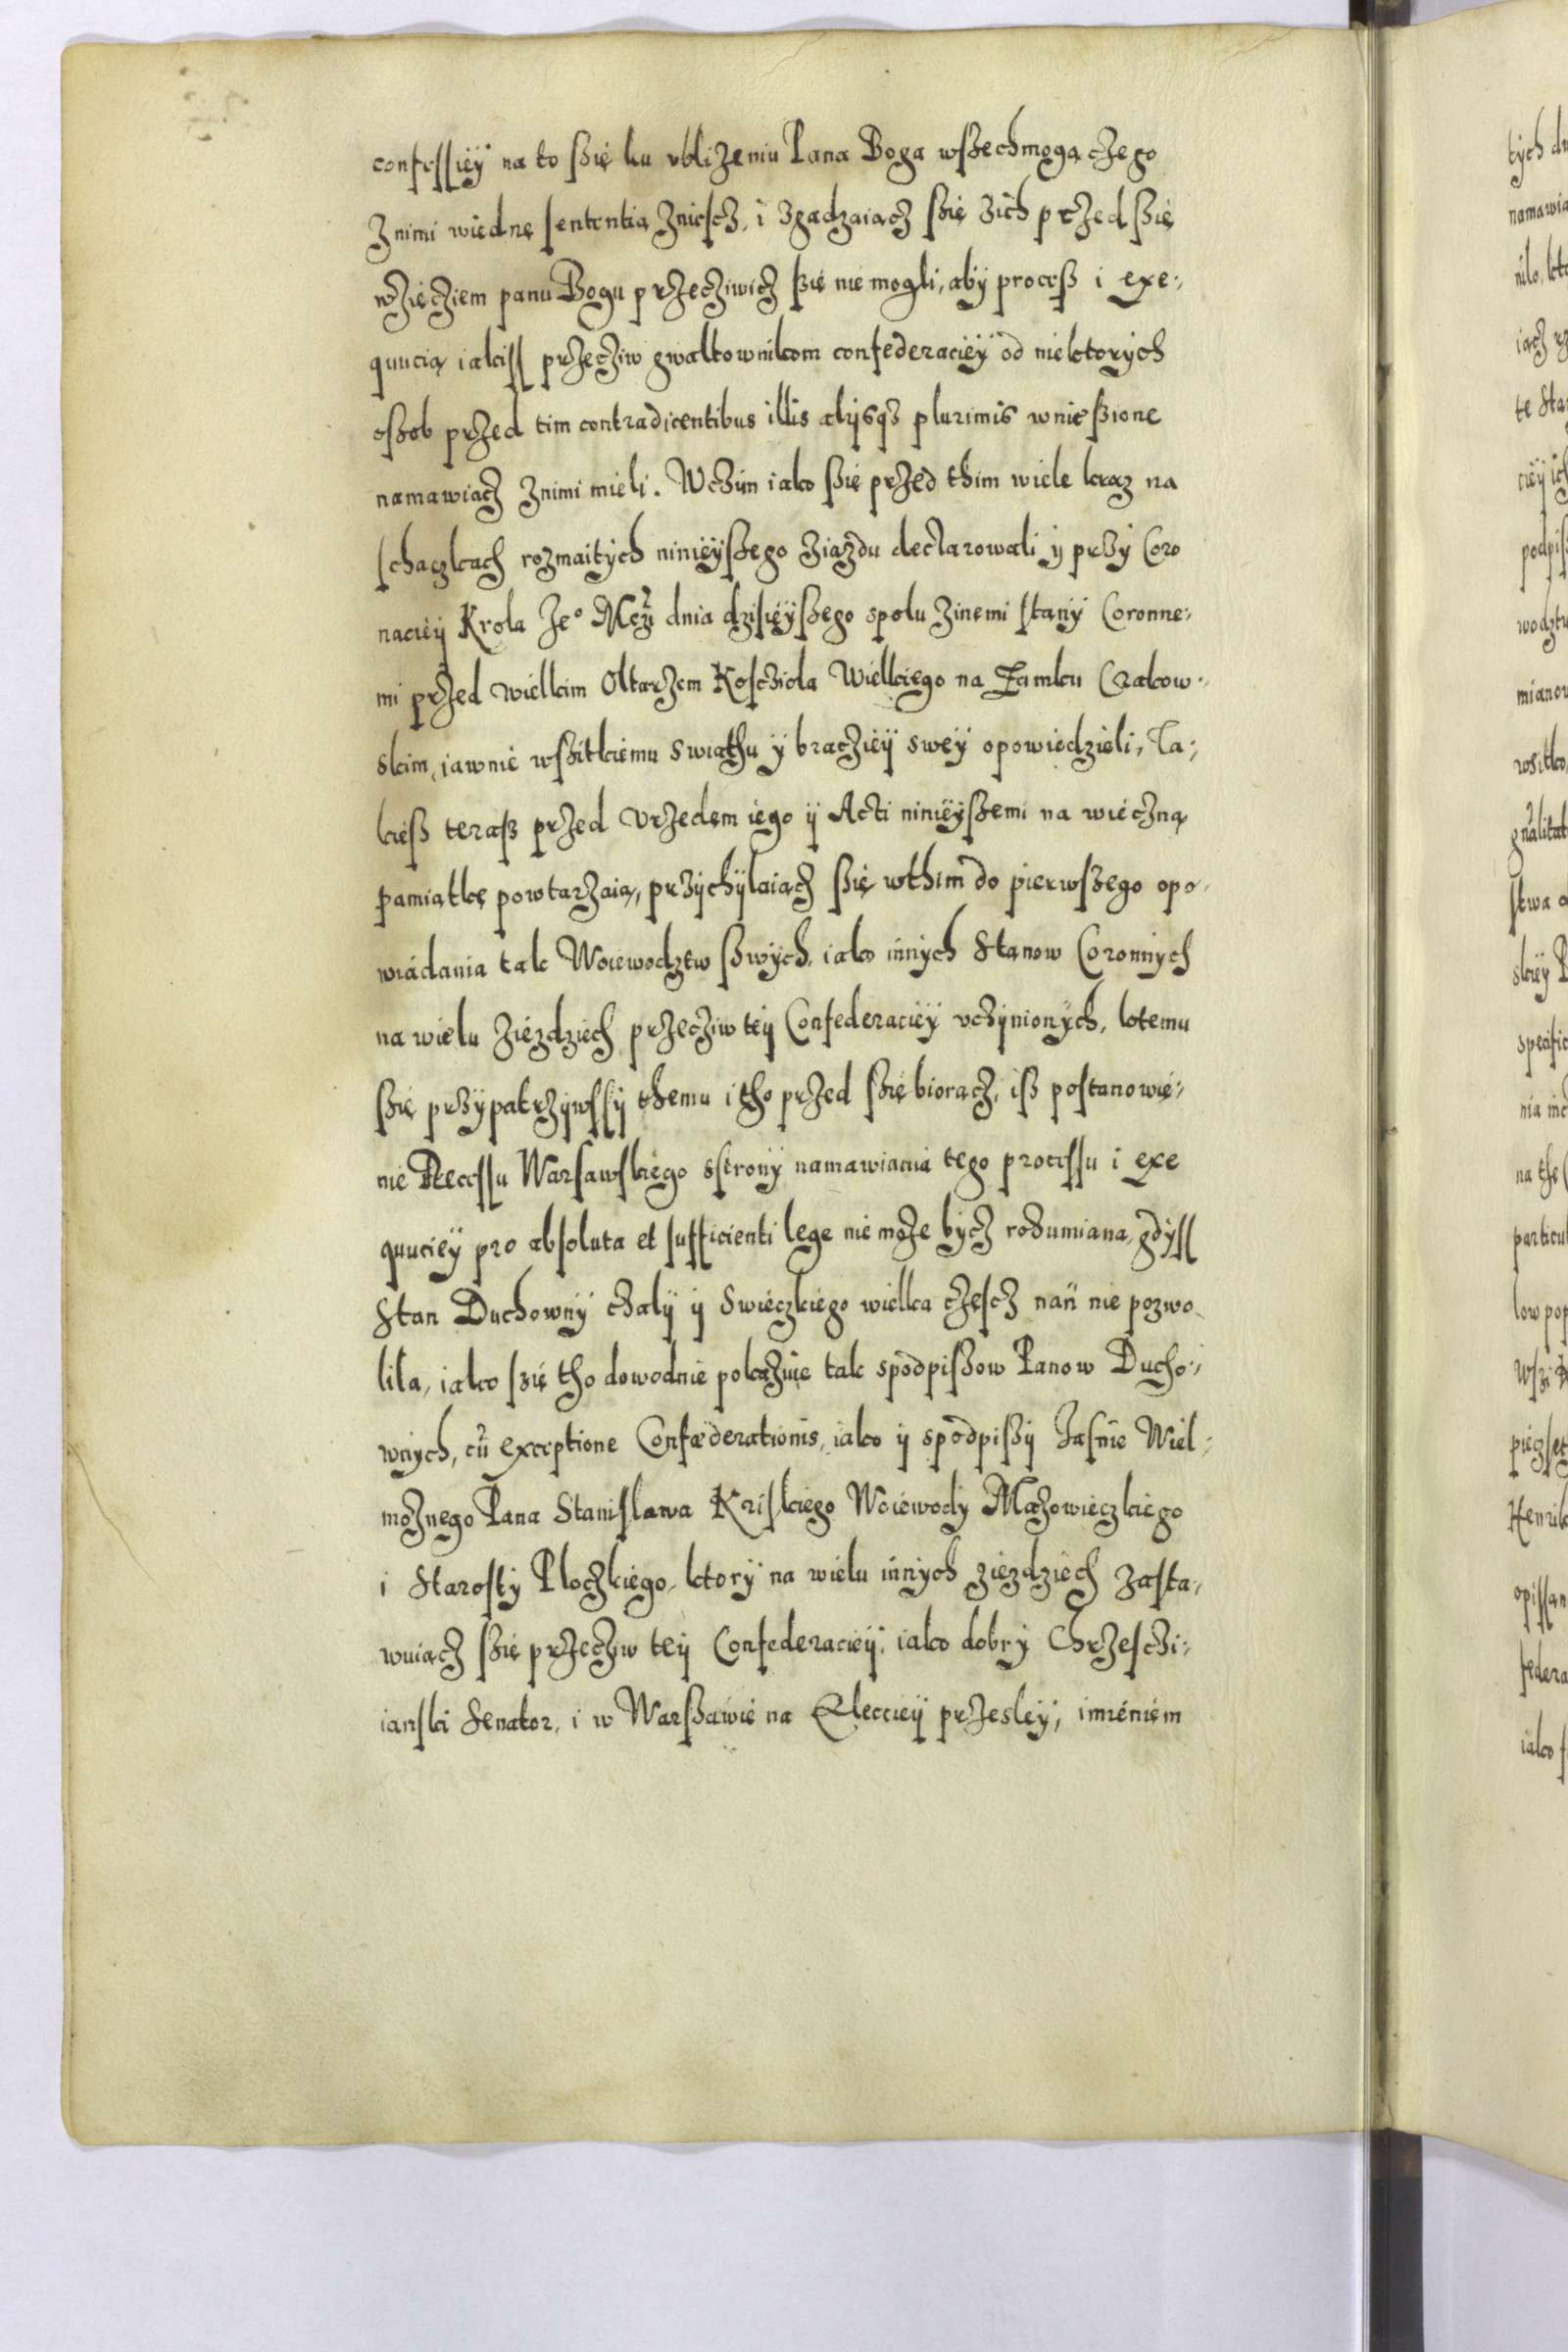 confessiÿ na to ßię ku ubliżeniu Pana Boga wßechmogączego
Znimi wiednę sententią Zniescz, i zgadzaiącz ßię zich przedßię
wżięcziem panu Bogu przecziwicz ßię nie mogli, abÿ proceß i exe-
quucią iakiss przecziw gwaltownikom confederacieÿ od niektorych
oßob przed tim contradicentibus illis alijsq3 plurimis wnießione
namawiacz znimi mieli. Wczim iako ßię przed thim wiele kracz na
schaczkach rozmaitÿch ninieÿßego ziazdu declarowali ÿ przÿ Coro
nacieÿ Krola Je° Mczi dnia dzisieÿßego spolu zinemi stanÿ Coronne-
mi przed wielkim Oltarzem Koscziola Wielkiego na Zamku Crakow-
skim, iawnie wßitkiemu swiathu ÿ braczieÿ sweÿ opowiedzieli, Ta-
kieß teraß przed Urzedem iego ÿ Acti ninieÿßemi na wiecżną
pamiątkę powtarzaią, przÿchÿlaiącz ßię wthim do pierwszego opo-
wiadania tak Woiewodztw ßwÿch, iako innÿch Stanow Coronnÿch
na wielu ziezdziech przecziw teÿ Confederacieÿ uczÿnionÿch, ktemu
ßię przÿpatrzÿwssÿ themu i tho przed ßię biorącz, iß postanowie-
nie Recessu Warsawskiego sstronÿ namawiania tego processu i exe
quucieÿ pro absoluta et sufficienti lege nie może bÿcz rozumiana, gdÿss
Stan Duchownÿ czalÿ ÿ Swieczkiego wielka czescz nań nie pozwo-
lila, iako się tho dowodnie pokazuie tak spodpißow Panow Ducho-
wnÿch, cũ exceptione Confæderationis, iako ÿ spodpißÿ Jasnie Wiel-
możnego Pana Stanislawa Kriskiego Woiewodÿ Mazowieczkiego
i Starostÿ Ploczkiego, ktorÿ na wielu innÿch ziezdziech zasta-
wuiącz ßię przeczjw teÿ Confederacieÿ, iako dobrÿ Chrzesczi-
ianski Senator, i w Warßawie na Elleccieÿ przesleÿ, imieniem